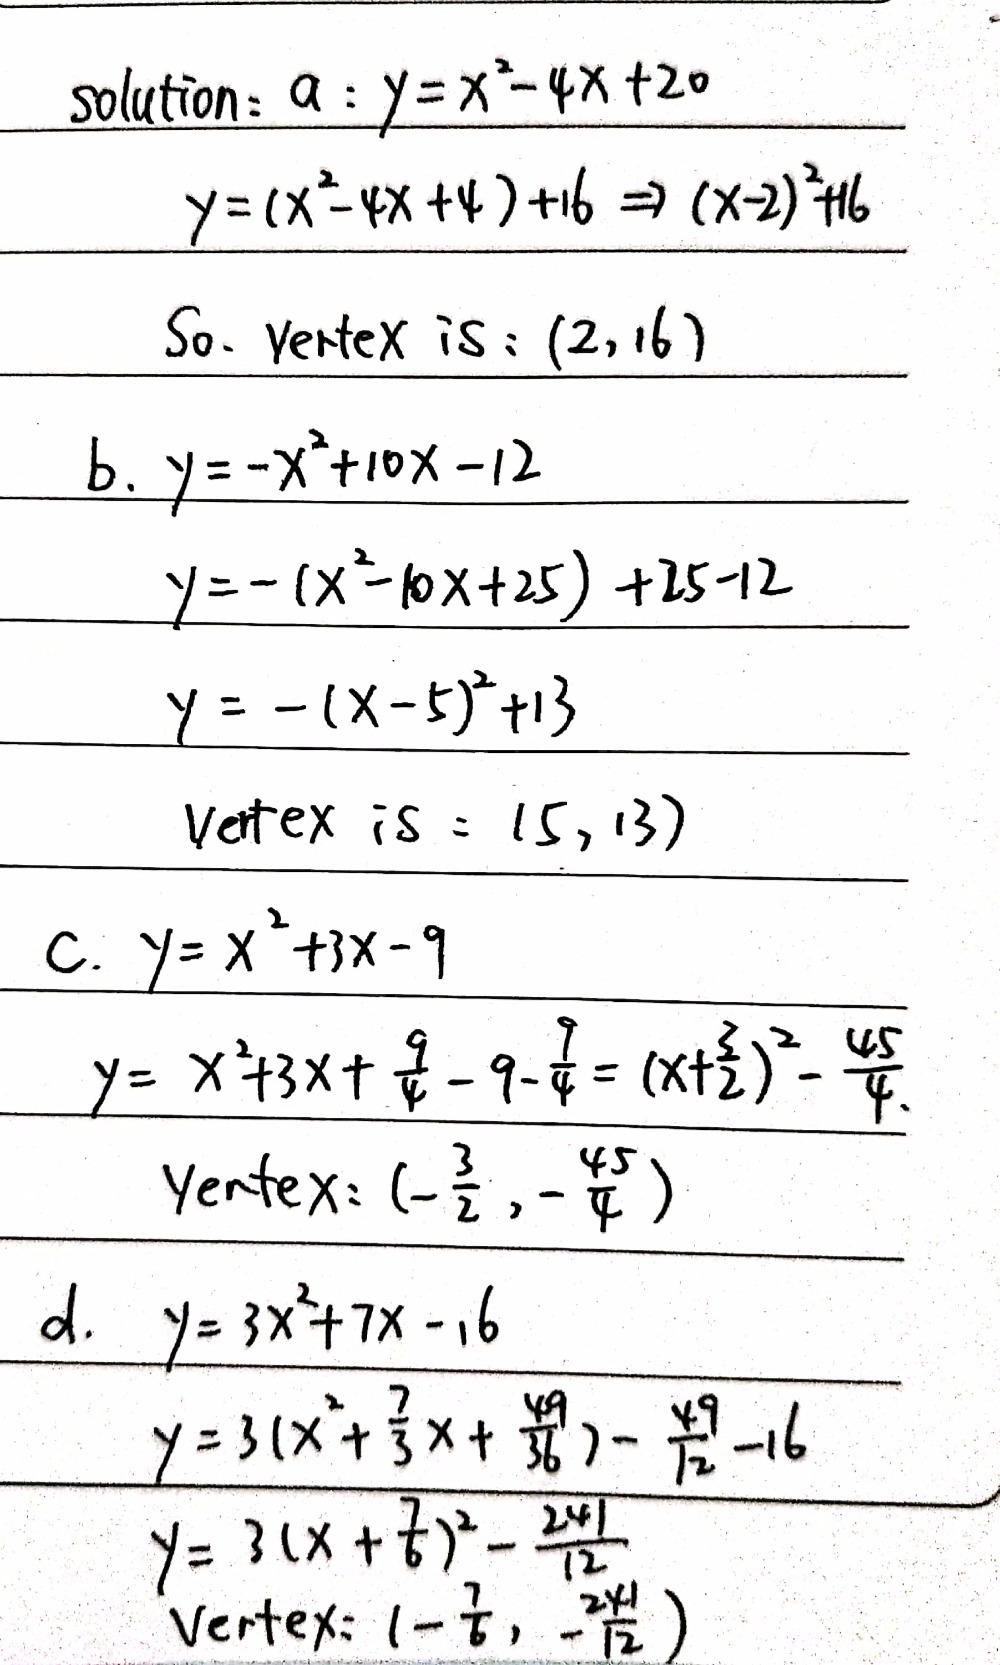 solution: a: y=x²-4x+20
y=(x²-4x+4)+16 ⇒ (x-2)²+16
So. Vertex is: (2,16)
b. y=-x²+10x-12
y=-(x²-10x+25)+25-12
y=-(x-5)²+13
Vertex is: (5,13)
c. y=x²+3x-9
y=x²+3x+9/4-9-9/4=(x+3/2)²-45/4.
Vertex: (-3/2,-45/4)
d. y=3x²+7x-16
y=3(x²+7/3x+49/36)-49/12-16
y=3(x+7/6)²-241/12
Vertex: (-7/6,-241/12)